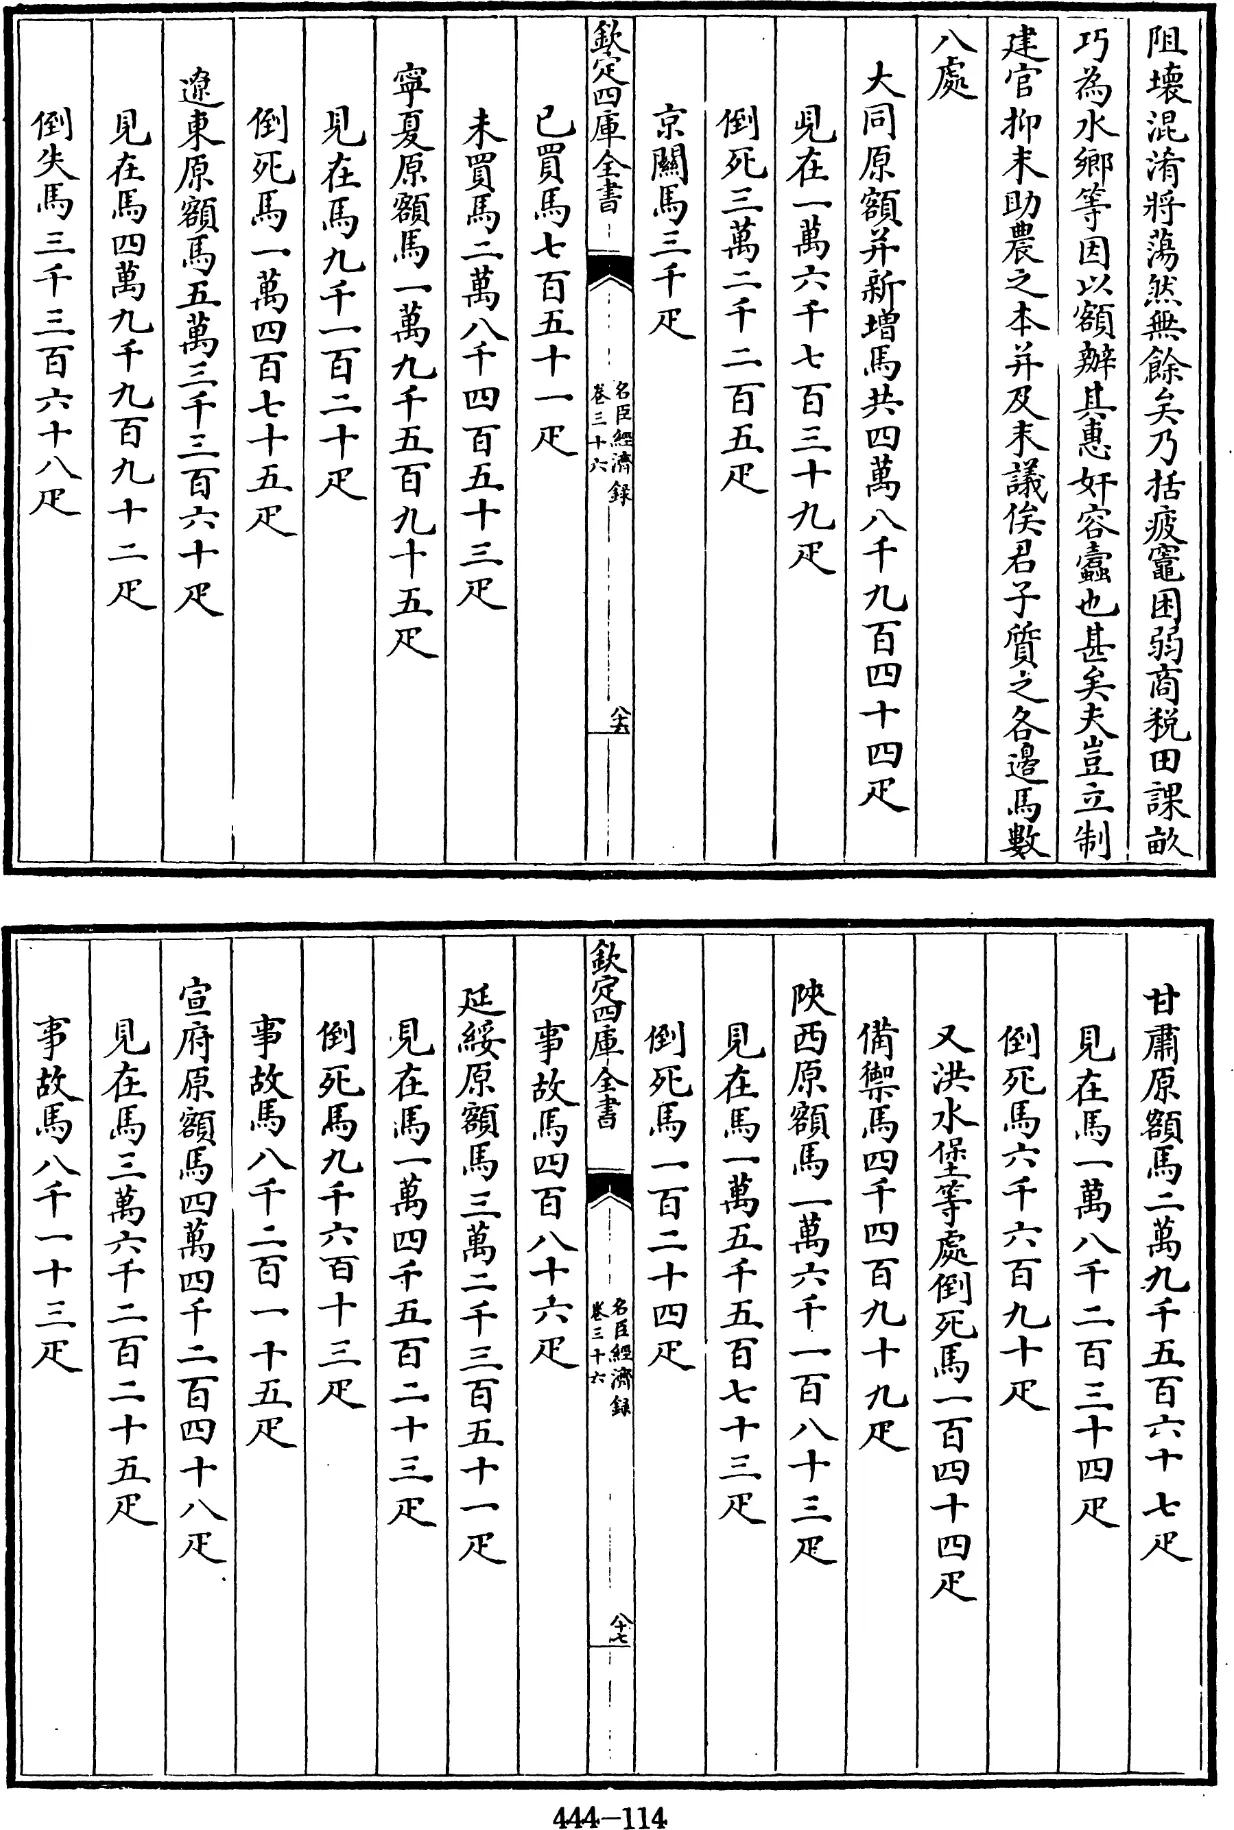 阻壞混淆將蕩然無餘矣乃括疲竈困弱商税田課畝
巧為水鄉等因以額辦其惠奸容蠹也甚矣夫豈立制
建官抑末助農之本并及末議俟君子質之各邊馬數
八處
大同原額并新增馬共四萬八千九百四十四疋
見在一萬六千七百三十九疋
倒死三萬二千二百五疋
京關馬三千疋
欽定四庫全書
名臣經濟録
卷三十六
八十六
已買馬七百五十一疋
未買馬二萬八千四百五十三疋
寧夏原額馬一萬九千五百九十五疋
見在馬九千一百二十疋
倒死馬一萬四百七十五疋
遼東原額馬五萬三千三百六十疋
見在馬四萬九千九百九十二疋
倒失馬三千三百六十八疋
甘肅原額馬二萬九千五百六十七疋
見在馬一萬八千二百三十四疋
倒死馬六千六百九十疋
又洪水堡等處倒死馬一百四十四疋
備禦馬四千四百九十九疋
陜西原額馬一萬六千一百八十三疋
見在馬一萬五千五百七十三疋
倒死馬一百二十四疋
欽定四庫全書
名臣經濟録
卷三十六
八十七
事故馬四百八十六疋
延綏原額馬三萬二千三百五十一疋
見在馬一萬四千五百二十三疋
倒死馬九千六百十三疋
事故馬八千二百一十五疋
宣府原額馬四萬四千二百四十八疋
見在馬三萬六千二百二十五疋
事故馬八千一十三疋
444-114